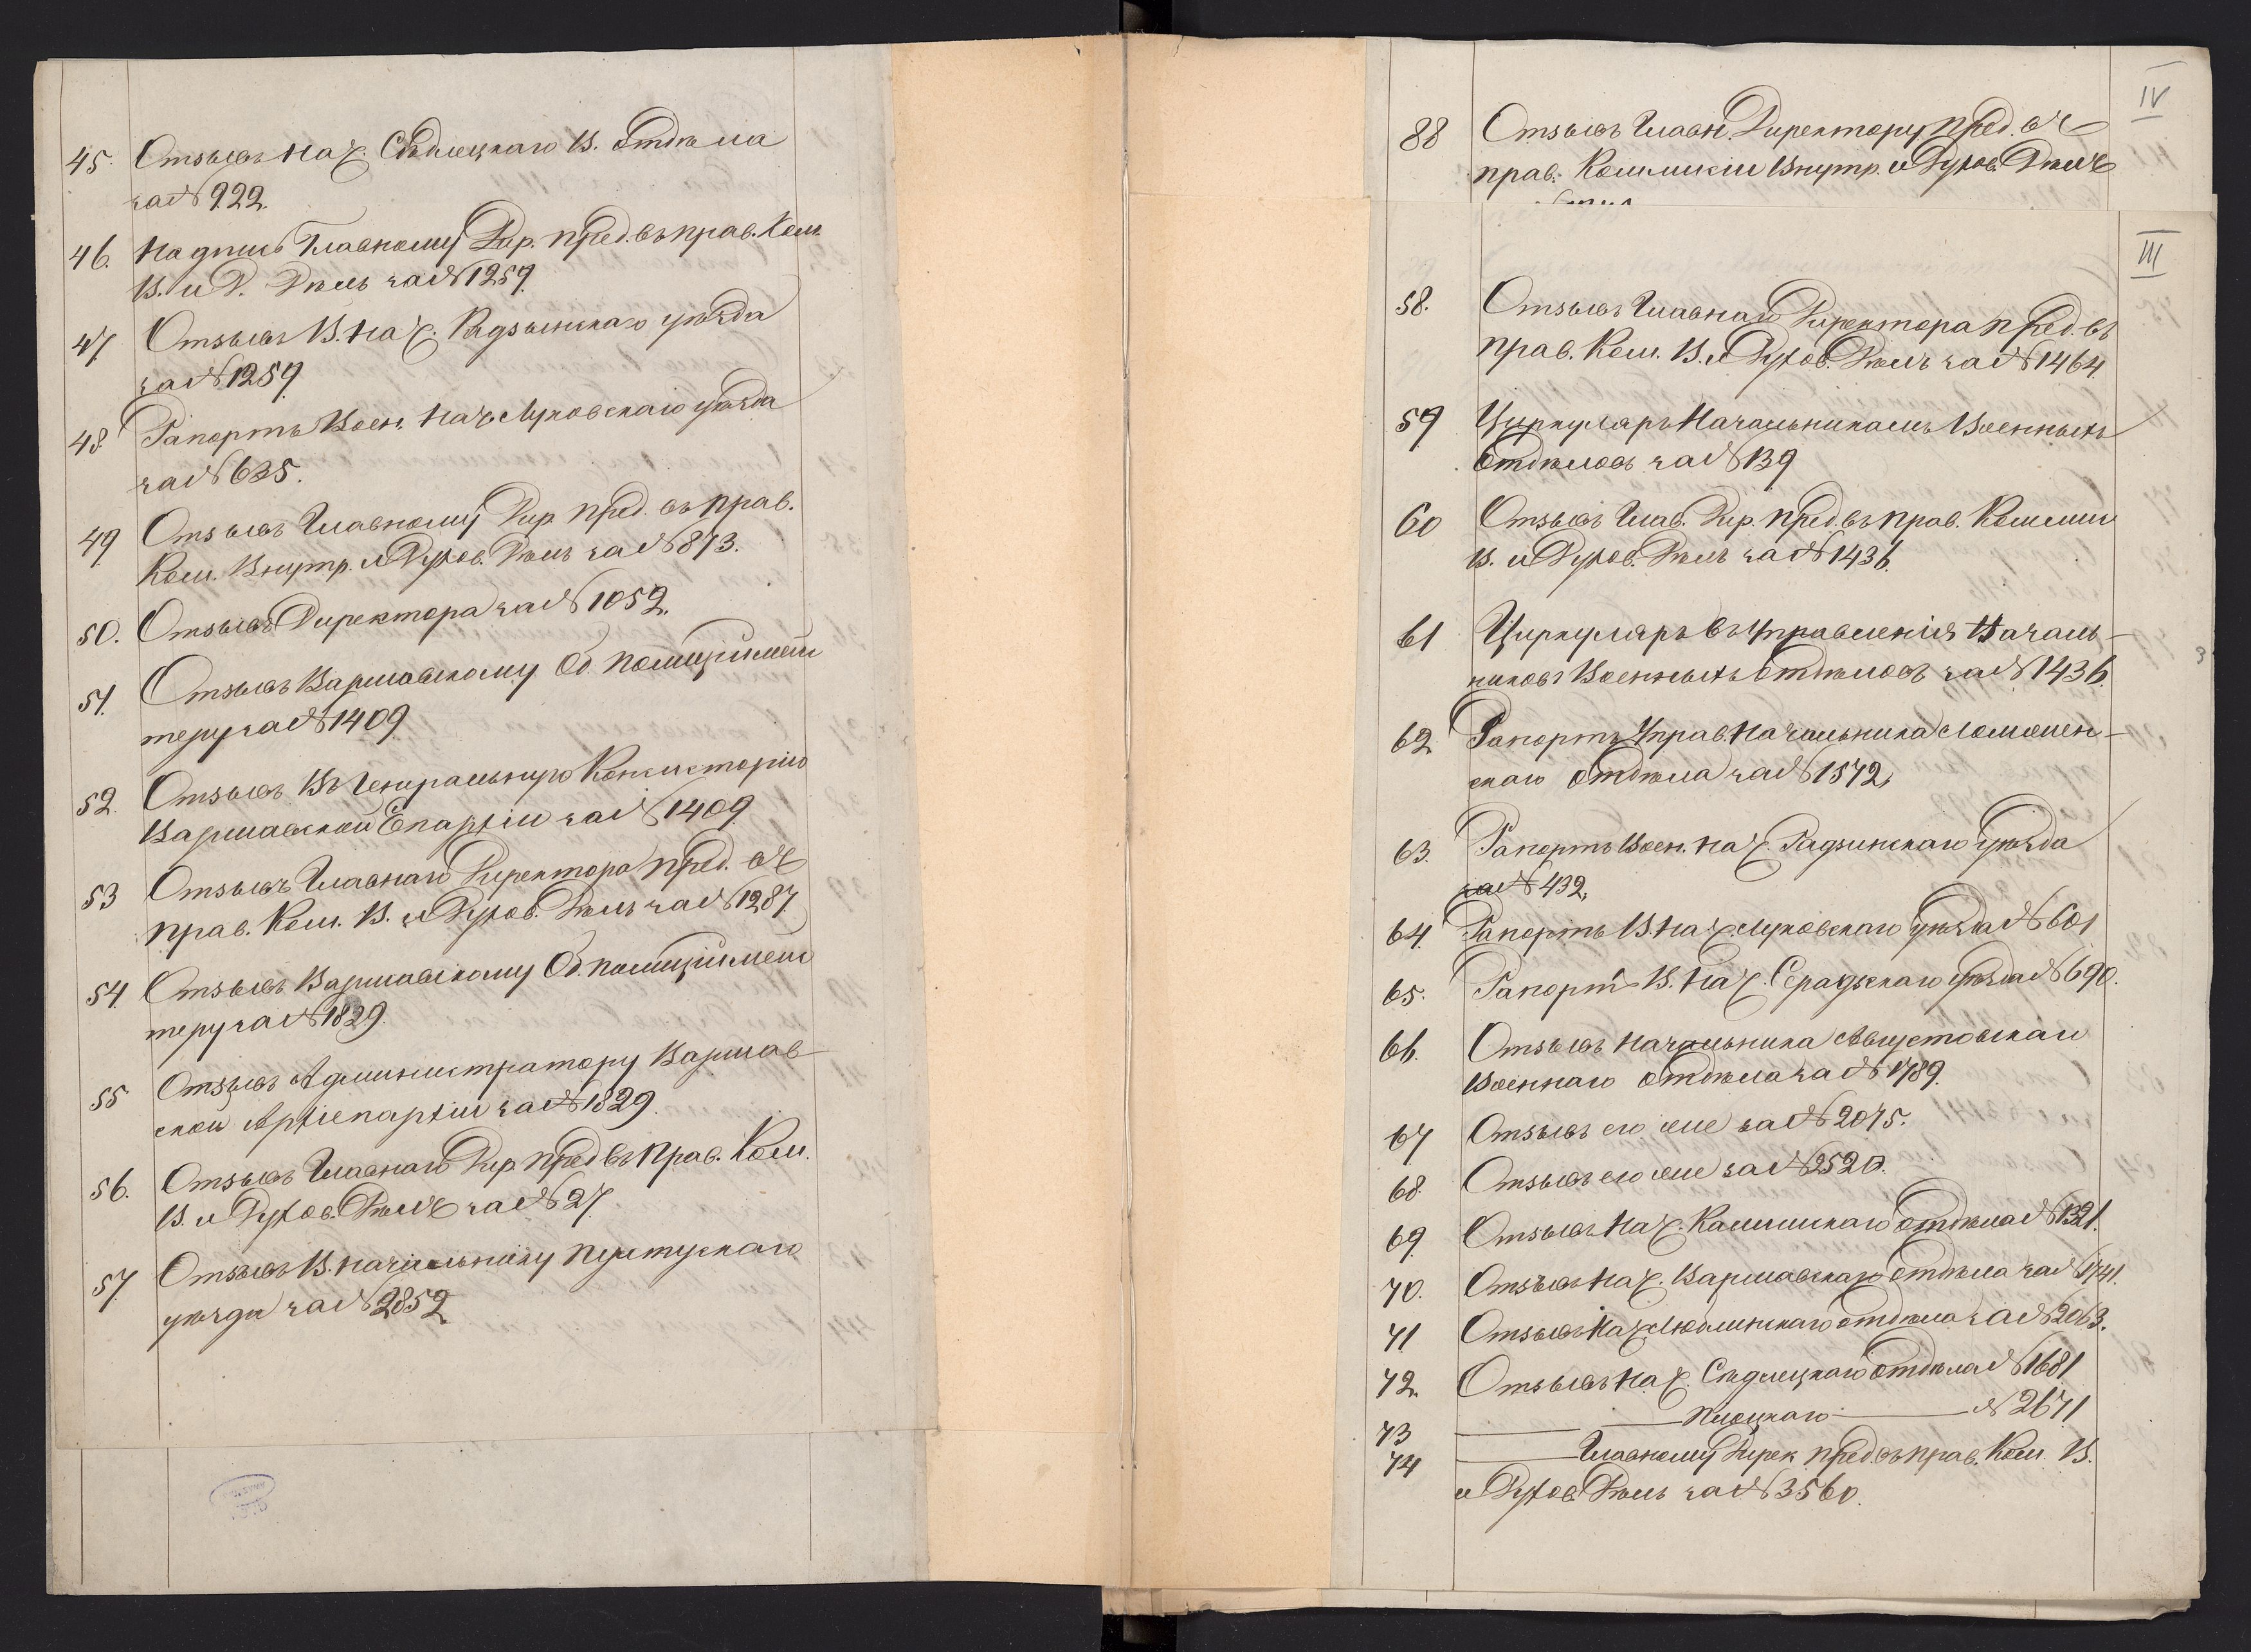 45. Отзывъ Нач. Сѣдлецкаго В. Отдѣла
за № 922.
46. Надпись Главному Дир. пред. въ прав. Ком.
В. и Д. Дѣлъ за № 1259.
47 Отзывъ В. Нач. Радзынскаго уѣзда
за № 1259.
48. Рапортъ Воен. Нач. Луковскаго уѣзда
за № 635.
49 Отзывъ Главному Дир. пред. въ прав.
Ком. Внутр. и Духов. Дѣлъ за № 873.
50. Отзывъ Директора за № 1052.
51. Отзывъ Варшавскому Об. полиціймей
теру за № 1409.
52. Отзывъ Въ Генеральную Консисторію
Варшавской Епархіи за № 1409
53 Отзывъ Главнаго Директора пред. въ
прав. Ком. В. и Духов. Дѣлъ за № 1287.
54. Отзывъ Варшавскому Об. полиціймей
теру за № 1829.
55 Отзывъ Администратору Варшав-
ской Архіепархіи за № 1829.
56. Отзывъ Главнаго Дир. пред въ прав. Ком.
В. и Духов. Дѣлъ за № 27
57 Отзывъ В. Начальнику Пултускаго
уѣзда за № 2852
IV
88 Отзывъ Главн. Директору пред. въ
прав. Коммисіи Внутр. и Духов. Дѣлъ
III
58. Отзывъ Главнаго Директора пред. въ
прав. Ком. В. и Духов. Дѣлъ за № 1464.
59 Циркуляръ Начальникамъ Военныхъ
Отдѣловъ за № 139
60 Отзывъ Глав. Дир. пред. въ прав. Коммис
В. и Духов. Дѣлъ за № 1436.
61 Циркуляръ въ Управленія Началь-
никовъ Военныхъ Отдѣловъ за № 1436.
62 Рапортъ Управ. Начальника Ломжен-
скаго Отдѣла за № 1572.
63. Рапортъ Воен. Нач. Радзинскаго уѣзда
за № 432.
64. Рапортъ В. Нач. Луковскаго уѣзда № 601
65. Рапортъ В. Нач. Серадзскаго уѣзда № 690.
66. Отзывъ Начальника Августовскаго
Военнаго Отдѣла за № 1789.
67 Отзывъ его же за № 2075.
68. Отзывъ его же за № 2520.
69 Отзывъ Нач. Калишскаго Отдѣла № 1321.
70. Отзывъ Нач. Варшавскаго Отдѣла за № 1741.
71 Отзывъ Нач. Люблинскаго отдѣла за № 2063.
72. Отзывъ Нач. Сѣдлецкаго Отдѣла № 1681
73 — Плоцкаго — № 2671
74 — Главному Дирек пред. въ прав. Ком. В.
и Духов. Дѣлъ за № 3560.